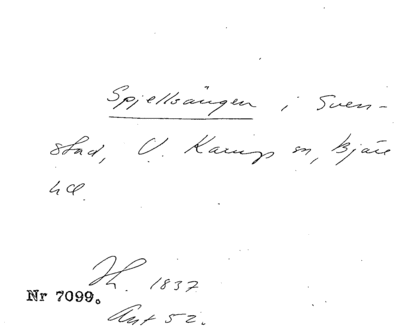 Spjellsängen i Sven-
stad, V. Karups sn, Bjäre
hd.
Jh. 1837
Nr 7099.
Ant 52.